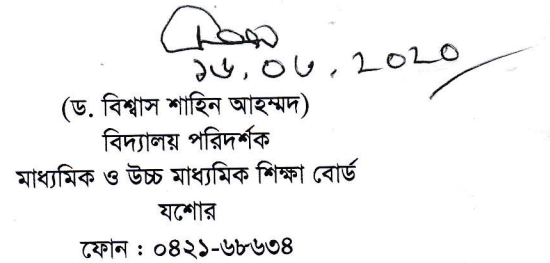 ১৬.০৮.2020
(ড. বিশ্বাস শাহিন আহম্মদ)
বিদ্যালয় পরিদর্শক
মাধ্যমিক ও উচ্চ মাধ্যমিক শিক্ষা বোর্ড
যশোর
ফোন : ০৪২১-৬৮৬৩৪